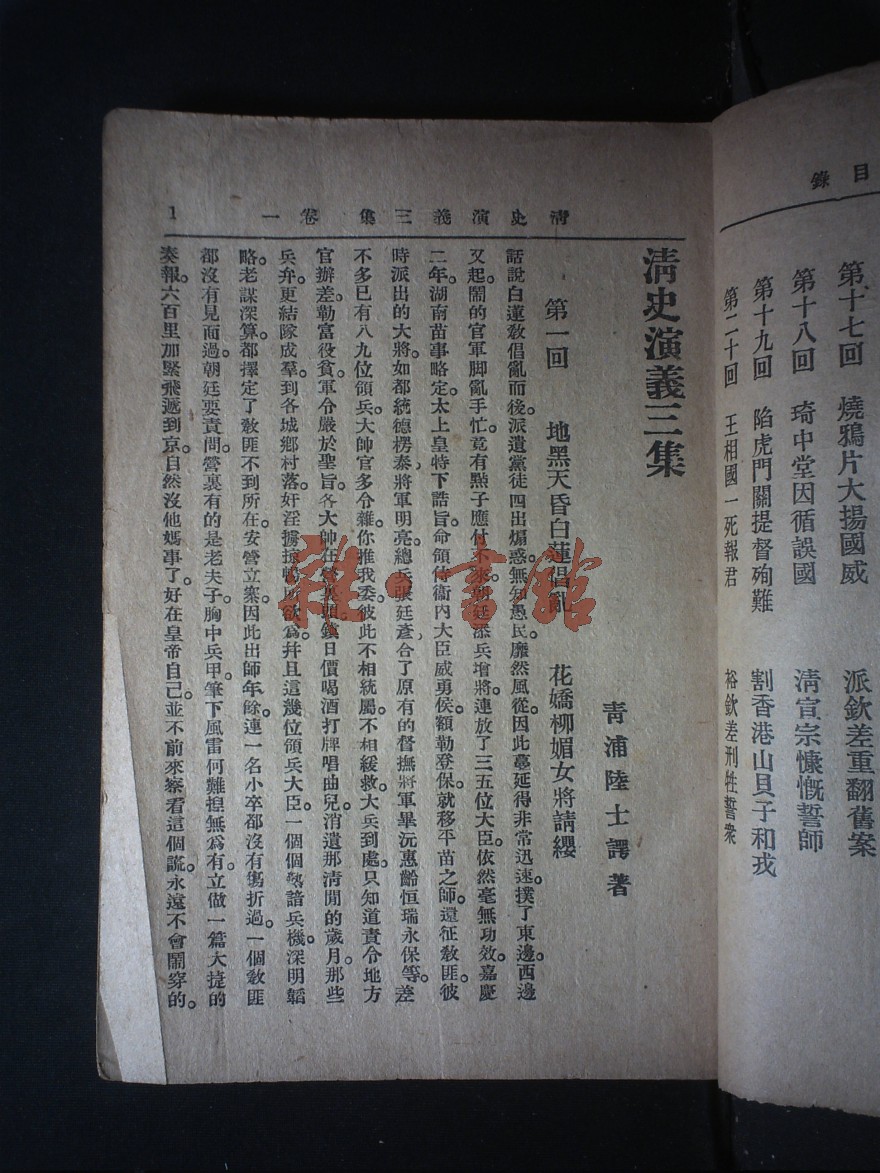 目錄
第十七回 燒鴉片大揚國威 派欽差重翻舊案
第十八回 琦中堂因循誤國 清宣宗慷慨誓師
第十九回 陷虎門關提督殉難 割香港山貝子和戎
第二十回 王相國一死報君 裕欽差刑牲誓眾
清史演義三集 卷一 1
清史演義三集
青浦陸士諤著
第一回 地黑天昏白蓮倡亂 花嬌柳媚女將請纓
話說白蓮教倡亂而後。派遣黨徒四出煽惑。無知愚民。靡然風從。因此蔓延得非常迅速。撲了東邊。西邊
又起。鬧的官軍脚亂手忙。竟有點子應付不來。朝廷添兵增將。連放了三五位大臣。依然毫無功效。嘉慶
二年。湖南苗事略定。太上皇特下誥旨。命領侍衞內大臣威勇侯。額勒登保。就移平苗之師。還征教匪。彼
時派出的大將。如都統德楞泰。將軍明亮。總兵張廷彥。合了原有的督撫將軍畢沅惠齡恒瑞永保等。差
不多已有八九位領兵大帥。官多令雜。你推我委。彼此不相統屬。不相緩救。大兵到處。只知道責令地方
官辦差。勒富役貧。軍令嚴於聖旨。各大帥在營裏頭。鎮日價喝酒打牌唱曲兒。消遣那清閒的歲月。那些
兵弁。更結隊成羣。到各城鄉村落。奸淫擄掠。暢所欲爲。幷且這幾位領兵大臣。一個個熟諳兵機。深明韜
略。老謀深算。都擇定了教匪不到所在。安營立寨。因此出師年餘。連一名小卒都沒有傷折過。一個教匪
都沒有見面過。朝廷要責問。營裏有的是老夫子。胸中兵甲。筆下風雷。何難揑無爲有。立做一篇大捷的
奏報。六百里加緊飛遞到京。自然沒他媽事了。好在皇帝自己。並不前來察看。這個謊。永遠不會鬧穿的。
雜·書館